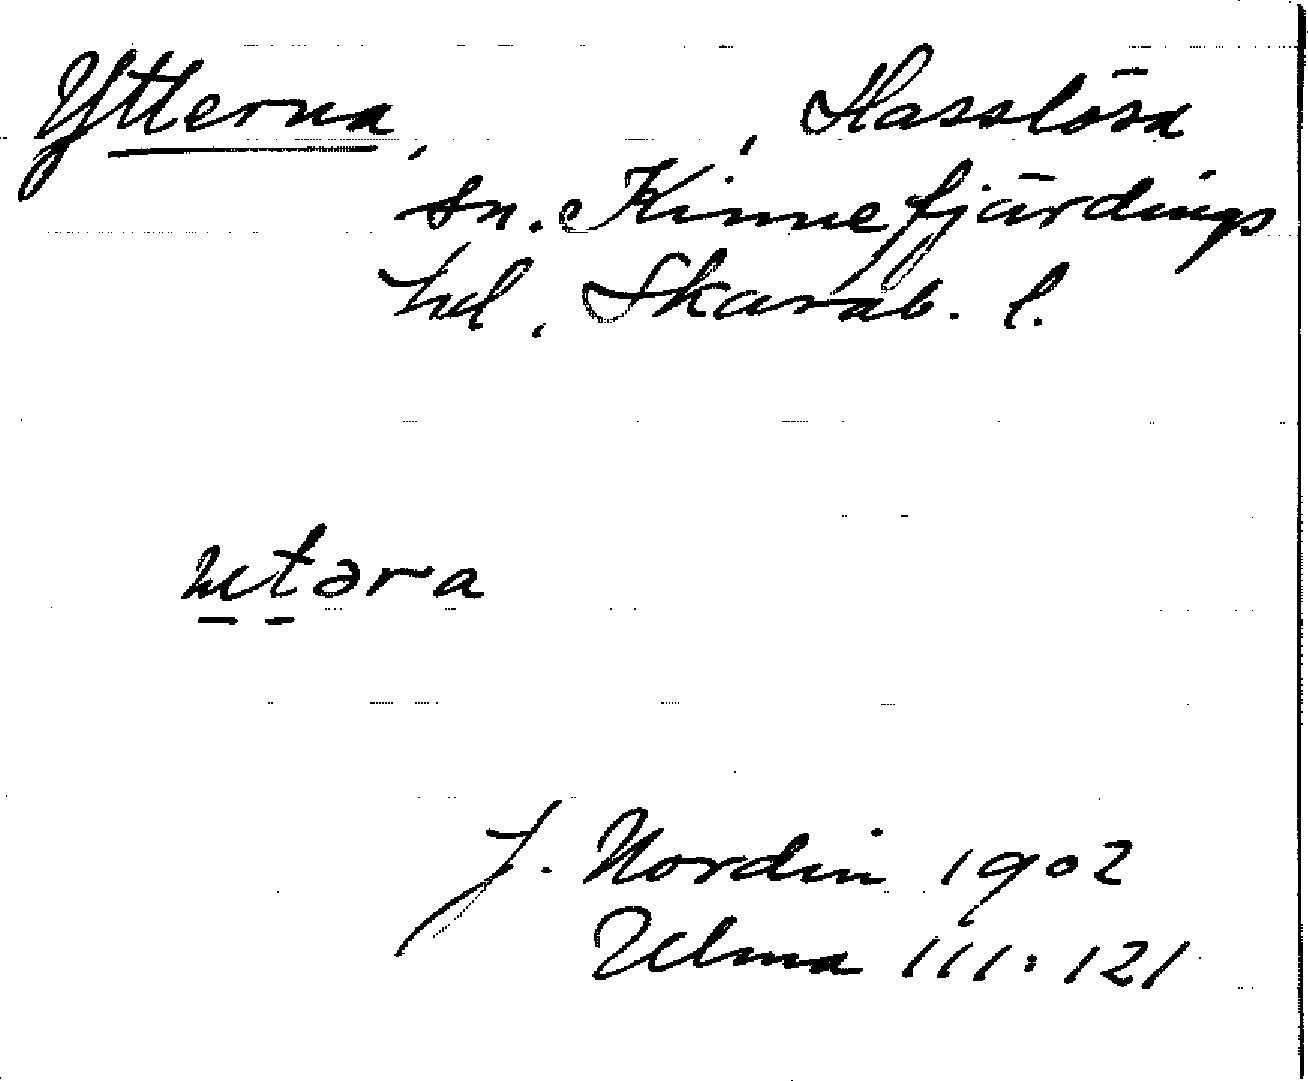 Ytterna, , Hasslösa
sn. Kinnefjärdings
hd, Skarab. l.
utəra
J. Nordin 1902
Ulma 111:121